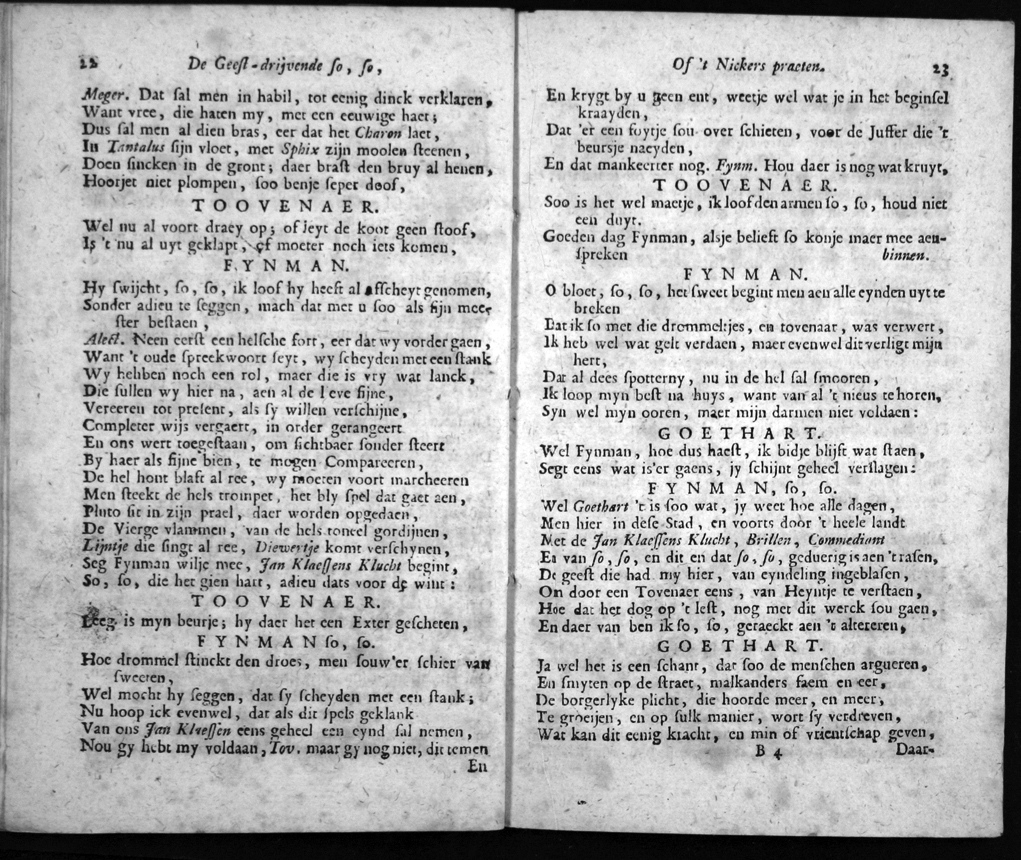 22 De Geeſt-drijvende ſo, ſo,
Meger. Dat ſal men in habil, tot eenig dinck verklaren,
Want vree, die haten my, met een eeuwige haet;
Dus ſal men al dien bras, eer dat het Charon laet,
In Tantalus ſijn vloet, met Sphix zijn moolen ſteenen,
Doen ſincken in de gront; daer braſt den bruy al henen,
Hoorjet niet plompen, ſoo benje ſeper doof,
TOOVENAER.
Wel nu al voort draey op; of ſeyt de koot geen ſtoof,
Is 't nu al uyt geklapt, of moeter noch iets komen,
FYNMAN.
Hy ſwijcht, ſo, ſo, ik loof hy heeft al afſcheyt genomen,
Sonder adieu te ſeggen, mach dat met u ſoo als ſijn meer
ſter beſtaen,
Alect. Neen eerſt een helſche fort, eer dat wy vorder gaen,
Want 't oude ſpreekwoort ſeyt, wy ſcheyden met een ſtank
Wy hebben noch een rol, maer die is vry wat lanck,
Die ſullen wy hier na, aen al de leve ſijne,
Vereeren tot preſent, als ſy willen verſchijne,
Completer wijs vergaert, in order gerangeert
En ons wert toegeſtaan, om ſichtbaer ſonder ſteert
By haer als ſijne bien, te mogen Compareeren,
De hel hont blaft al ree, wy moeten voort marcheeren
Men ſteekt de hels trompet, het bly ſpel dat gaet aen,
Pluto ſit in zijn prael, daer worden opgedaen,
De Vierge vlammen, van de hels toneel gordijnen,
Lijntje die ſingt al ree, Diewertje komt verſchynen,
Seg Fynman wilje mee, Jan Klaeſſens Klucht begint,
So, ſo, die het gien hart, adieu dats voor de wint:
TOOVENAER.
Leeg is myn beurje; hy daer het een Exter geſcheten,
FYNMAN ſo, ſo.
Hoe drommel ſtinckt den droes, men ſouw'er ſchier van
ſweeten,
Wel mocht hy ſeggen, dat ſy ſcheyden met een ſtank;
Nu hoop ick evenwel, dat als dit ſpels geklank
Van ons Jan Klaeſſen eens geheel een eynd ſal nemen,
Nou gy hebt my voldaan, Tov. maar gy nog niet, dit temen
En
Of 't Nickers praeten. 23
En krygt by u geen ent, weetje wel wat je in het beginſel
kraayden,
Dat 'er een foytje ſou over ſchieten, voor de Juffer die 't
beursje naeyden,
En dat mankeerter nog. Fynm. Hou daer is nog wat kruyt,
TOOVENAER.
Soo is het wel maetje, ik loof den armen ſo, ſo, houd niet
een duyt.
Goeden dag Fynman, alsje belieft ſo konje maer mee aen-
ſpreken binnen.
FYNMAN.
O bloet, ſo, ſo, het ſweet begint men aen alle eynden uyt te
breken
Dat ik ſo met die drommeltjes, en tovenaar, was verwert,
Ik heb wel wat gelt verdaen, maer evenwel dit verligt mijn
hert,
Dat al dees ſpotterny, nu in de hel ſal ſmooren,
Ik loop myn beſt na huys, want van al 't nieus te horen,
Syn wel myn ooren, maer mijn darmen niet voldaen:
GOETHART.
Wel Fynman, hoe dus haeſt, ik bidje blijft wat ſtaen,
Segt eens wat is'er gaens, jy ſchijnt geheel verſlagen:
FYNMAN, ſo, ſo.
Wel Goethart 't is ſoo wat, jy weet hoe alle dagen,
Men hier in deſe Stad, en voorts door 't heele landt
Met de Jan Klaeſſens Klucht, Brillen, Commediant
En van ſo, ſo, en dit en dat ſo, ſo, geduerig is aen 't raſen,
De geeſt die had my hier, van eyndeling ingeblaſen,
Om door een Tovenaer eens, van Heyntje te verſtaen,
Hoe dat het dog op 't leſt, nog met dit werck ſou gaen,
En daer van ben ik ſo, ſo, geraeckt aen 't altereren,
GOETHART.
Ja wel het is een ſchant, dat ſoo de menſchen argueren,
En ſmyten op de ſtraet, malkanders faem en eer,
De borgerlyke plicht, die hoorde meer, en meer,
Te groeijen, en op ſulk manier, wort ſy verdreven,
Wat kan dit eenig kracht, en min of vrientſchap geven,
B 4 Daar-